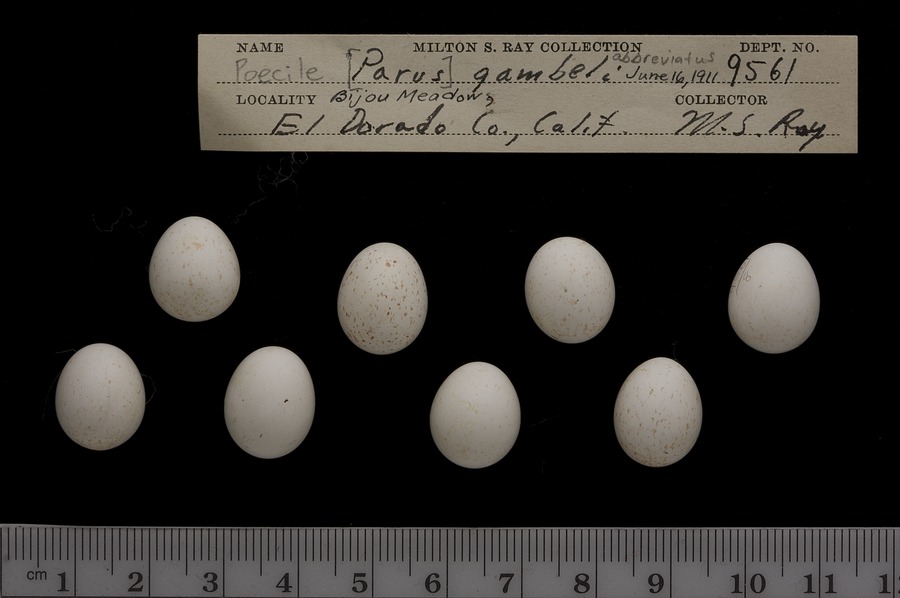 NAME MILTON S. RAY COLLECTION DEPT. NO.
Poecile [Parus] gambeli abbreviatus June 16, 1911 9561
LOCALITY Bijou Meadows, COLLECTOR
El Dorado Co., Calif. M. S. Ray
cm 1 2 3 4 5 6 7 8 9 10 11 1